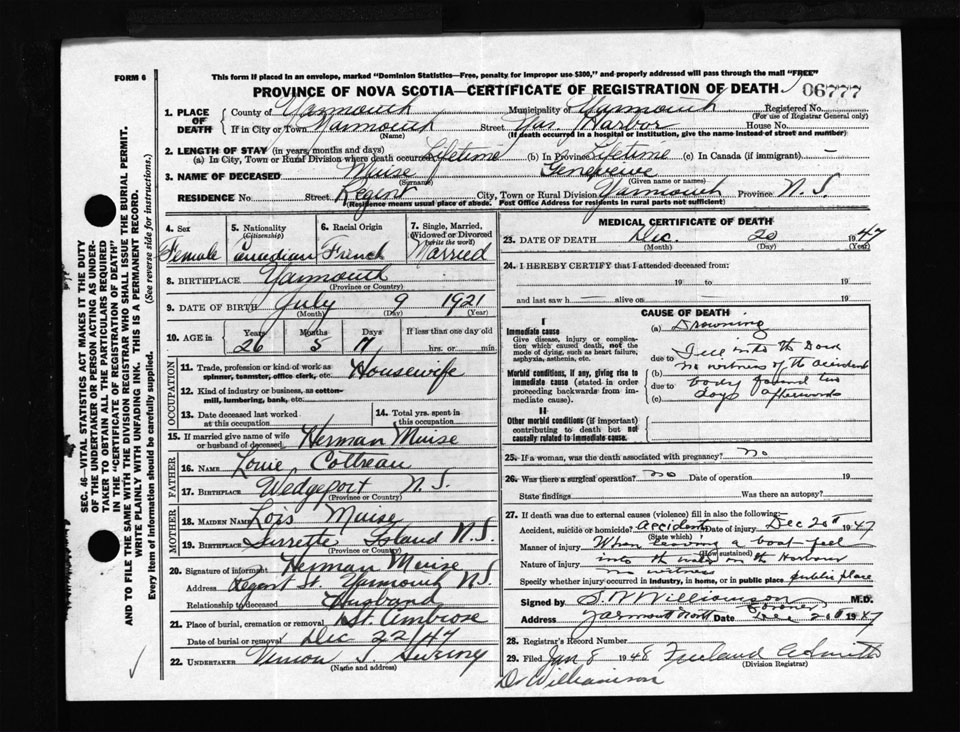 FORM 6
This form if placed in an envelope, marked "Dominion Statistics—Free, penalty for improper use $300," and properly addressed will pass through the mail "FREE"
PROVINCE OF NOVA SCOTIA—CERTIFICATE OF REGISTRATION OF DEATH 06777
1. PLACE OF DEATH
County of Yarmouth Municipality of Yarmouth Registered No.
(For use of Registrar General only)
If in City or Town Yarmouth Street Yar Harbor House No.
(Name) (If death occurred in a hospital or institution, give the name instead of street and number)
2. LENGTH OF STAY (in years, months and days)
(a) In City, Town or Rural Division where death occurred Lifetime (b) In Province Lifetime (c) In Canada (if immigrant) —
3. NAME OF DECEASED Muise Genevieve
(Surname) (Given name or names)
RESIDENCE No. Street Regent City, Town or Rural Division Yarmouth Province N.S.
(Residence means usual place of abode. Post Office Address for residents in rural parts not sufficient)
4. Sex
Female
5. Nationality
(Citizenship)
Canadian
6. Racial Origin
French
7. Single, Married, Widowed or Divorced
(write the word)
Married
8. BIRTHPLACE Yarmouth
(Province or Country)
9. DATE OF BIRTH July 9 1921
(Month) (Day) (Year)
10. AGE in Years Months Days If less than one day old
26 5 11 hrs. or min.
OCCUPATION
11. Trade, profession or kind of work as Housewife
spinner, teamster, office clerk, etc.
12. Kind of industry or business, as cotton-
mill, lumbering, bank, etc.
13. Date deceased last worked
at this occupation
14. Total yrs. spent in
this occupation
15. If married give name of wife
or husband of deceased Herman Muise
FATHER
16. NAME Louie Cottreau
17. BIRTHPLACE Wedgeport N.S.
(Province or Country)
MOTHER
18. MAIDEN NAME Lois Muise
19. BIRTHPLACE Surrette Island N.S.
(Province or Country)
20. Signature of informant Herman Muise
Address Regent St. Yarmouth N.S.
Relationship to deceased Husband
21. Place of burial, cremation or removal St. Ambrose
Date of burial or removal Dec 22/47
22. UNDERTAKER Vernon
(Name and address)
MEDICAL CERTIFICATE OF DEATH
23. DATE OF DEATH Dec. 20 1947
(Month) (Day) (Year)
24. I HEREBY CERTIFY that I attended deceased from:
19 to 19
and last saw h alive on 19
CAUSE OF DEATH
I
Immediate cause
Give disease, injury or complication which caused death, not the mode of dying, such as heart failure, asphyxia, asthenia, etc.
Morbid conditions, if any, giving rise to immediate cause (stated in order proceeding backwards from immediate cause).
II
Other morbid conditions (if important) contributing to death but not causally related to immediate cause.
(a) Drowning
due to into the
(b) no witness of the accident
due to body found two
(c) days afterwards
25. If a woman, was the death associated with pregnancy? no
26. Was there a surgical operation? no Date of operation 19
State findings Was there an autopsy?
27. If death was due to external causes (violence) fill in also the following:
Accident, suicide or homicide? accident Date of injury Dec 20th 1947
(State which)
Manner of injury When leaving a boat feel
(How sustained)
Nature of injury into the water in the Harbour
no witness
Specify whether injury occurred in industry, in home, or in public place public place
Signed by S. W Williamson M.D.
Coroner
Address Yarmouth North Date Dec. 20th 1947
28. Registrar's Record Number
29. Filed Jan 8 1948
(Division Registrar)
Dr Williamson
SEC. 46—VITAL STATISTICS ACT MAKES IT THE DUTY
OF THE UNDERTAKER OR PERSON ACTING AS UNDER-
TAKER TO OBTAIN ALL THE PARTICULARS REQUIRED
IN THE "CERTIFICATE OF REGISTRATION OF DEATH"
AND TO FILE THE SAME WITH THE DIVISION REGISTRAR WHO SHALL ISSUE THE BURIAL PERMIT.
WRITE PLAINLY WITH UNFADING INK. THIS IS A PERMANENT RECORD.
Every item of information should be carefully supplied. (See reverse side for instructions.)